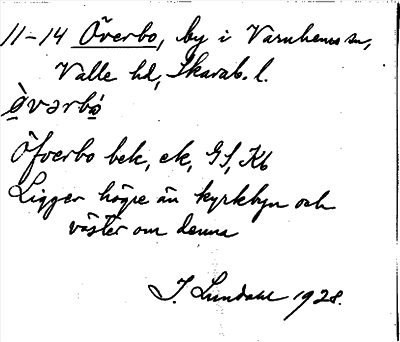 11-14 Överbo, by i Varnhems sn,
Valle hd, Skarab. l.
òvərbó
Öfverbo bek, ek, GS, Kb
Ligger högre än kyrkbyn och
väster om denna
I. Lundahl 1928.